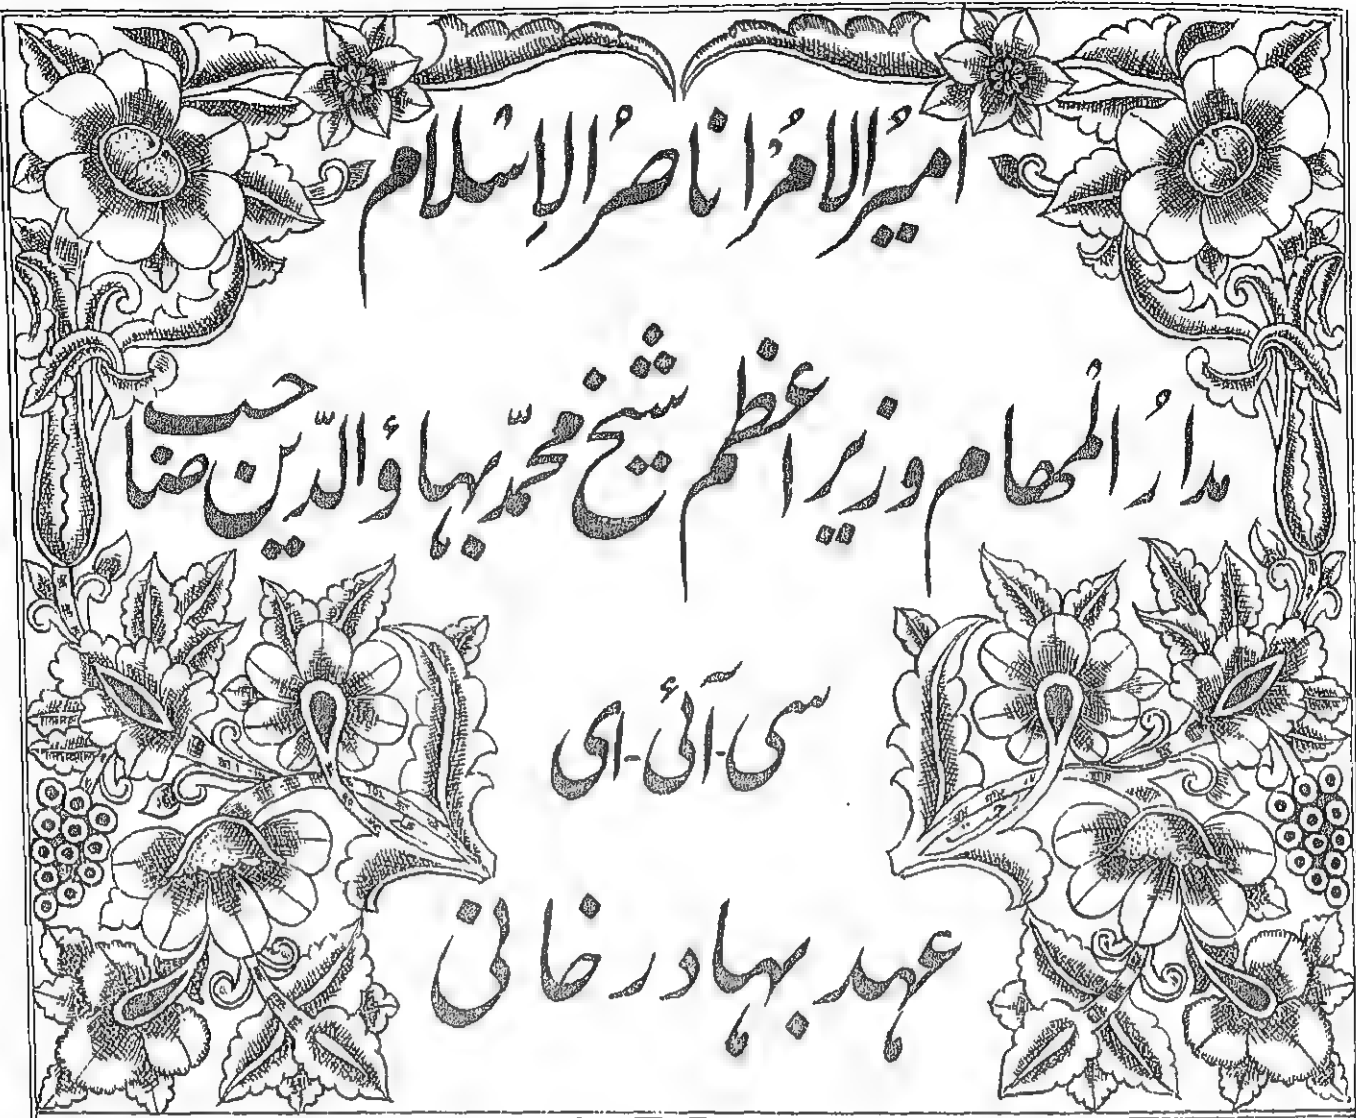 امیرُ الامرُا ناصرُ الاِسْلام
مدارُ الْمھام وزیر اعظم شیخ محمّد بہاؤ الدّین صاحب
سی-آئی-ای
عہد بہادر خانی